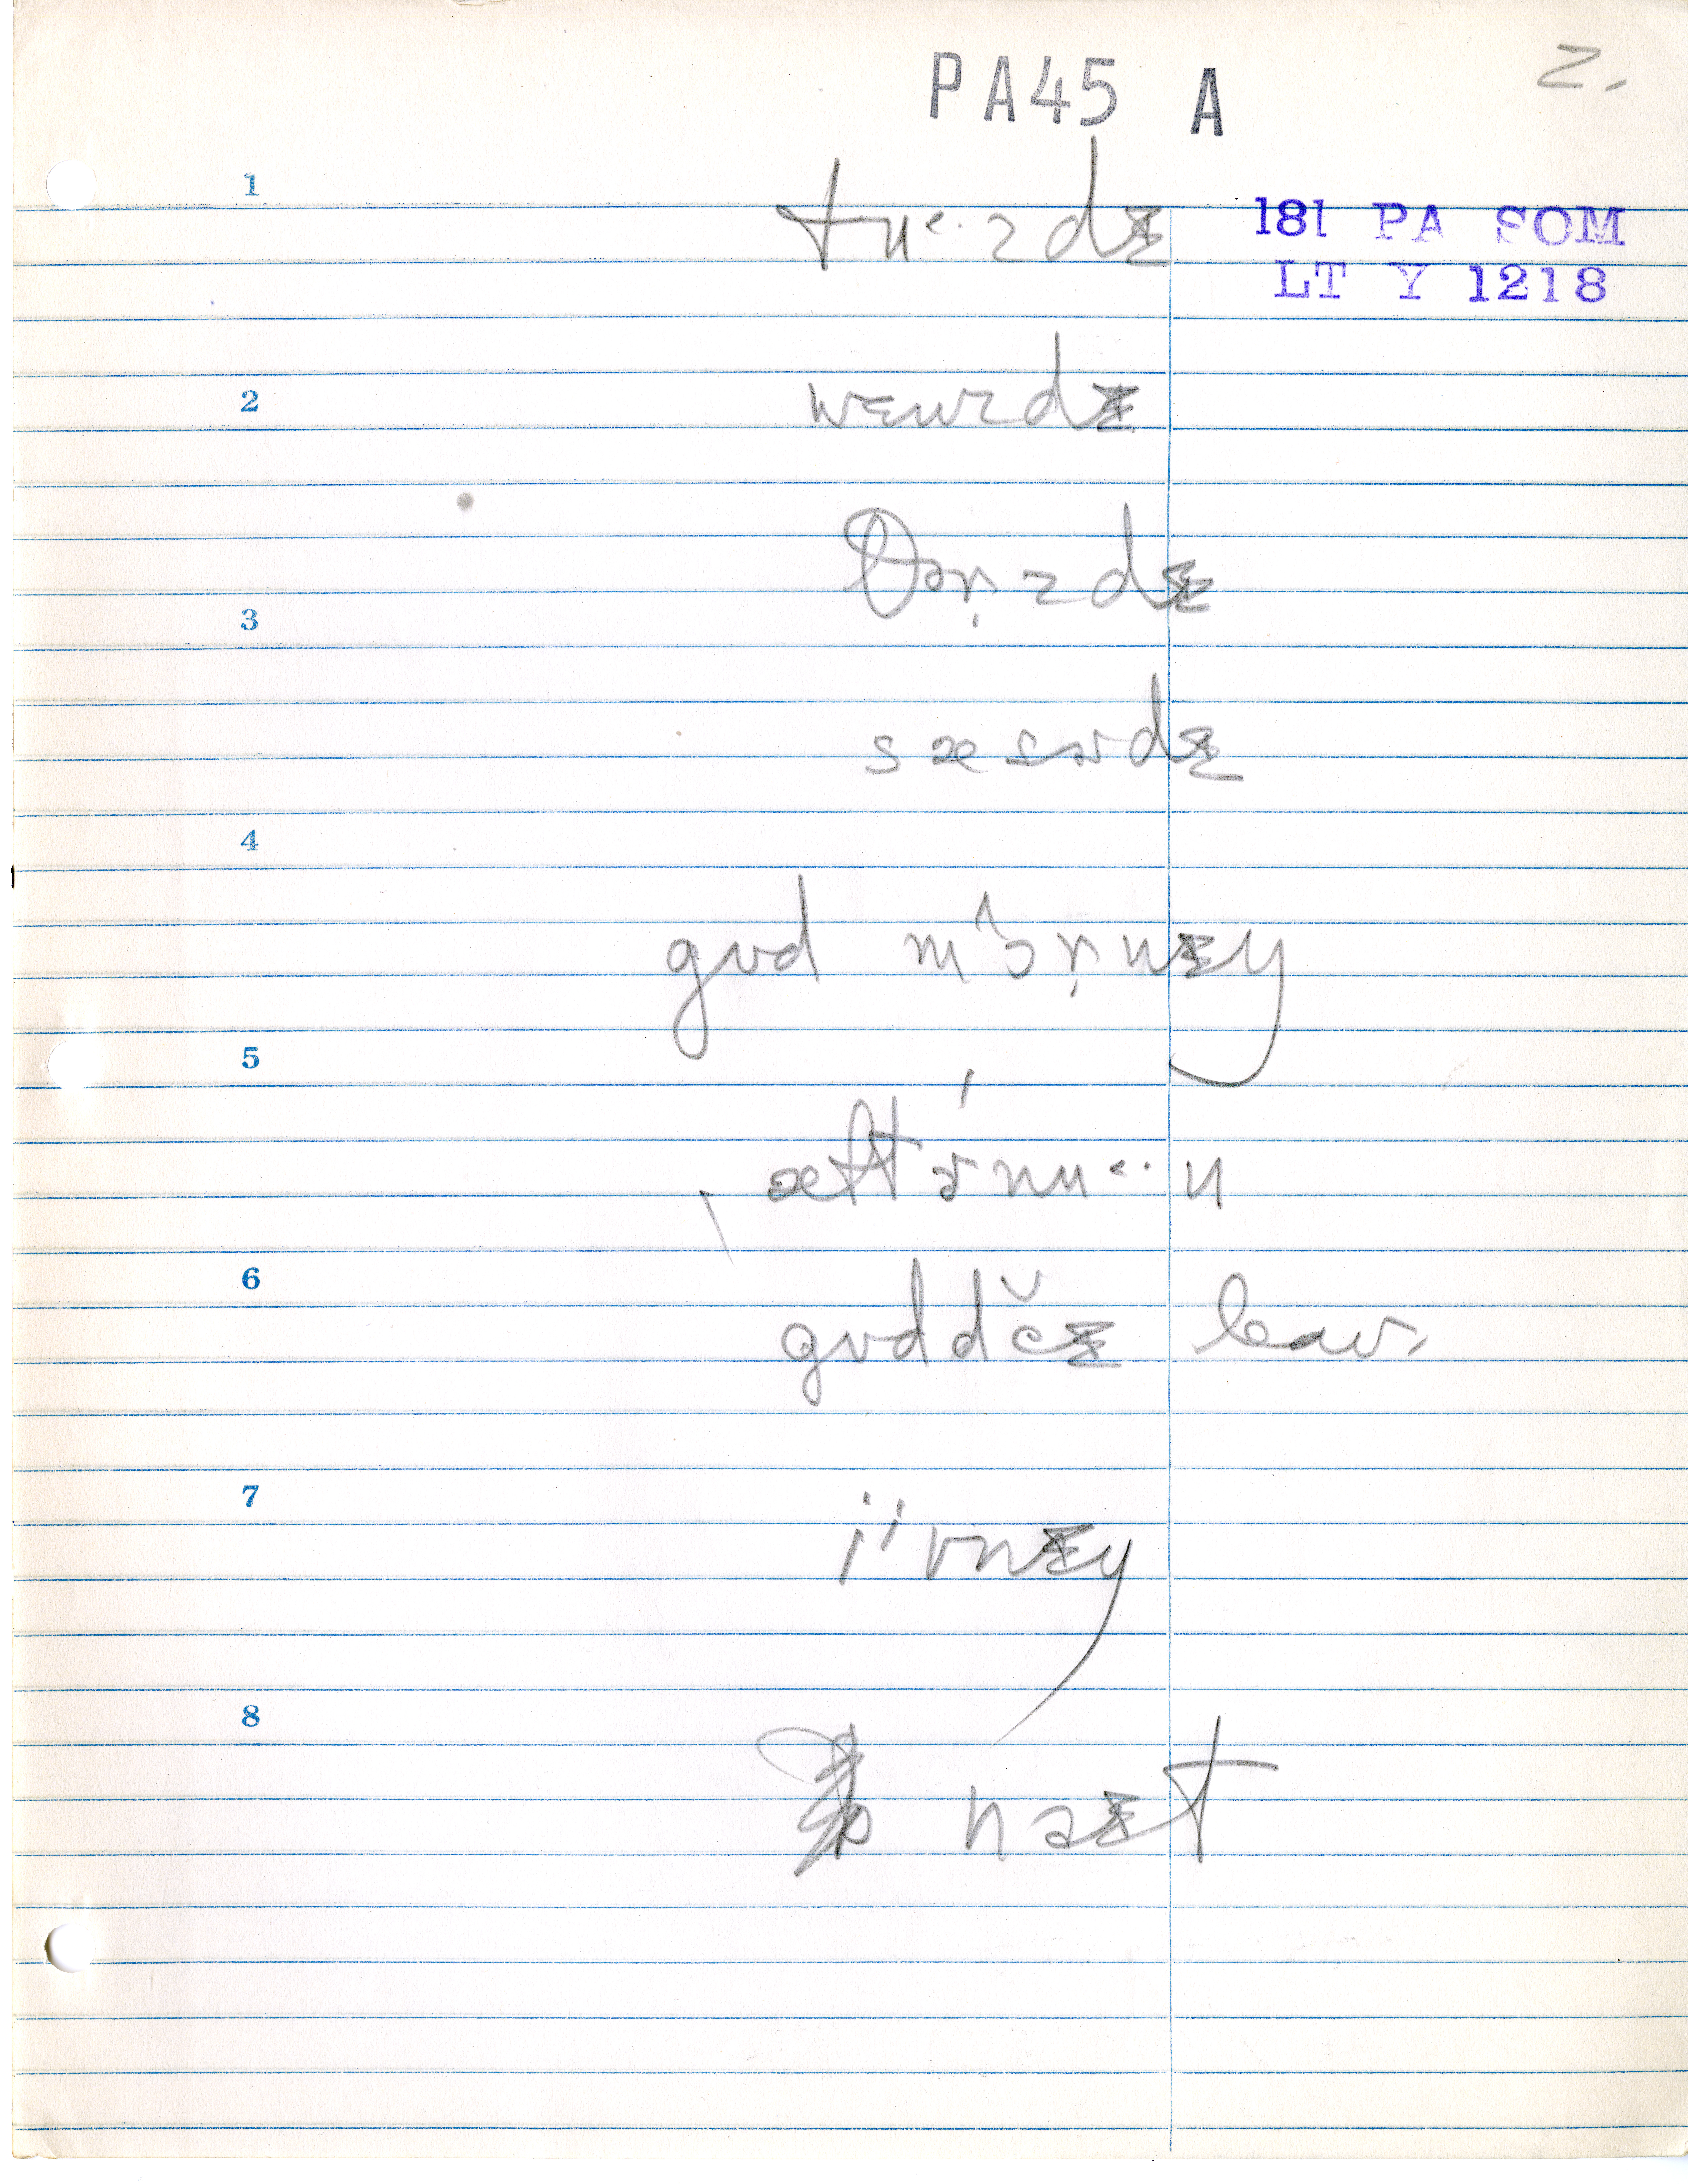 PA45 A 2.
1
181 PA SOM
LT Y 1218
tu˂·zdɪ
2
wɛnzdɪ
θɚzdɪ
3
sæsɚdɪ
4
gʊd mɔ̂ṛnɪŋ
5
æftɚ́nu˂·n
6
gʊddĕɪ
7
i'vnɪŋ
8
naɪt